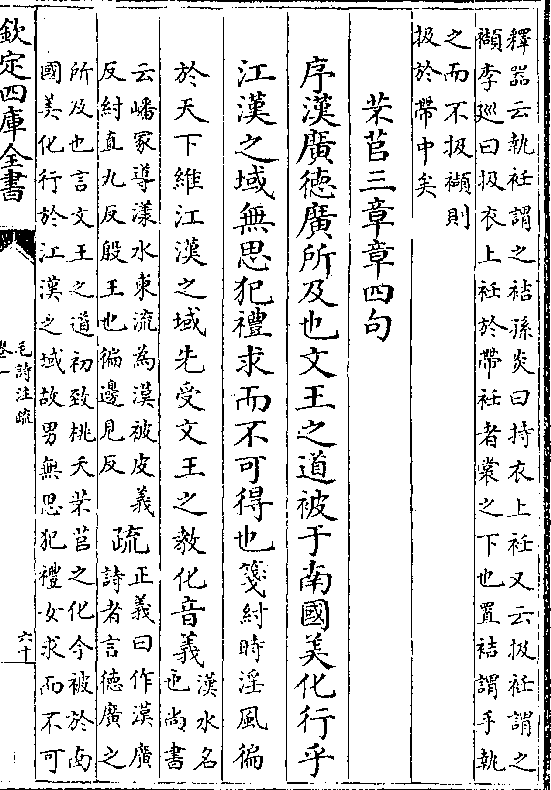 釋器云執衽謂之袺孫炎曰持衣上衽又云扱衽謂之
襭李巡曰扱衣上衽於帶衽者裳之下也置袺謂手執
之而不扱襭則
扱於帶中矣
芣苢三章章四句
序漢廣德廣所及也文王之道被于南國美化行乎
江漢之域無思犯禮求而不可得也箋紂時淫風徧
於天下維江漢之域先受文王之教化音義漢水名
也尚書
云嶓冢導漾水東流為漢被皮義
反紂直九反殷王也徧邊見反
疏正義曰作漢廣
詩者言德廣之
所及也言文王之道初致桃夭芣苢之化今被於南
國美化行於江漢之域故男無思犯禮女求而不可
欽定四庫全書
毛詩注疏
卷一
六十